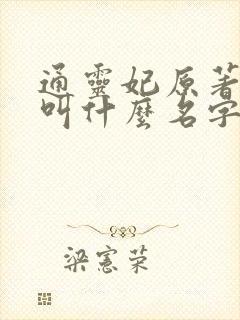 通靈妃原著
叫什麼名字
梁憲荣